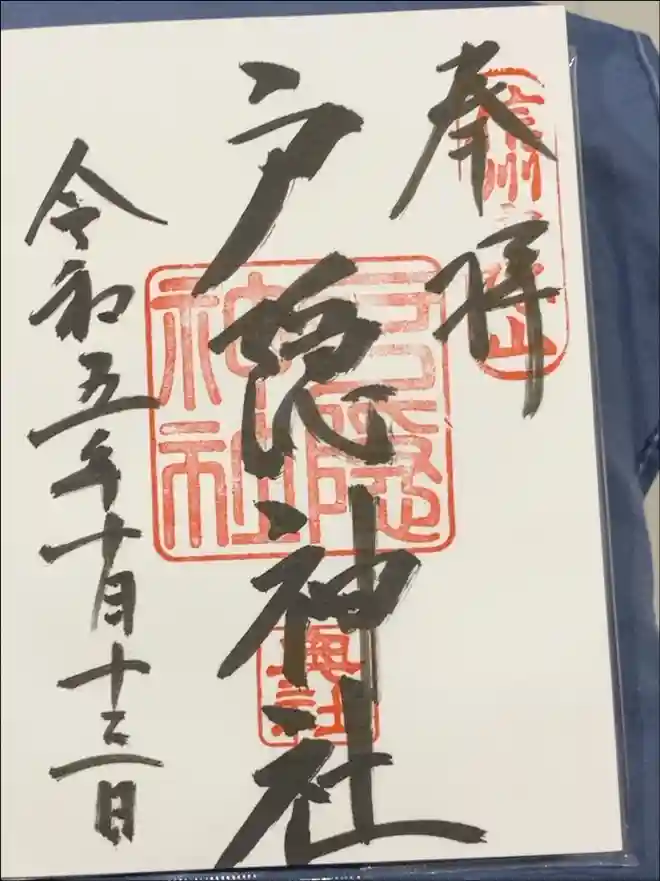 奉拝
信州戸隠山
戸隠神社
戸隠神社
奥社
令和五年十月十三日